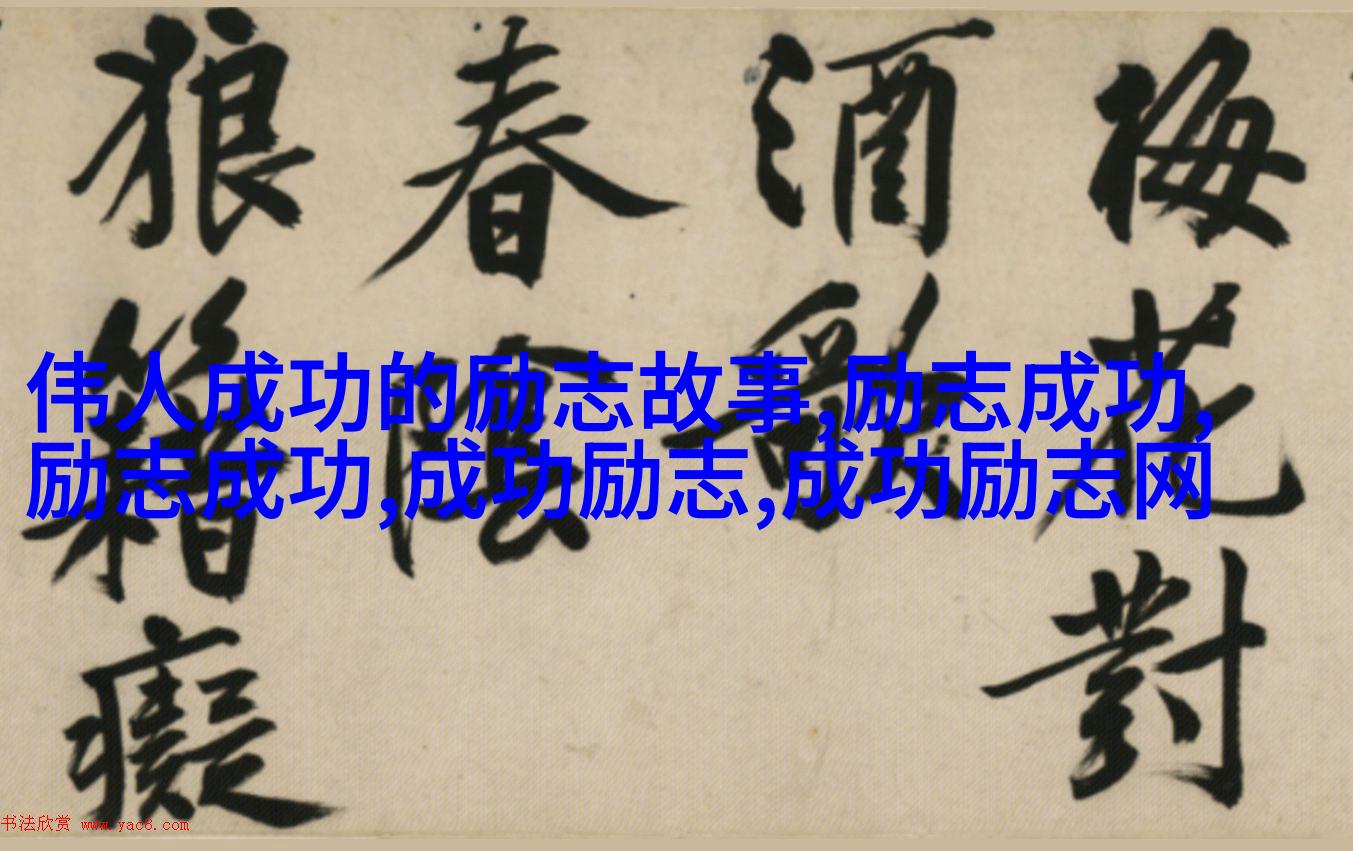 梅花對
酒
春陰
狼籍癡
伟人成功的励志故事,励志成功,
励志成功,成功励志,成功励志网
书法欣赏 www.yac8.com